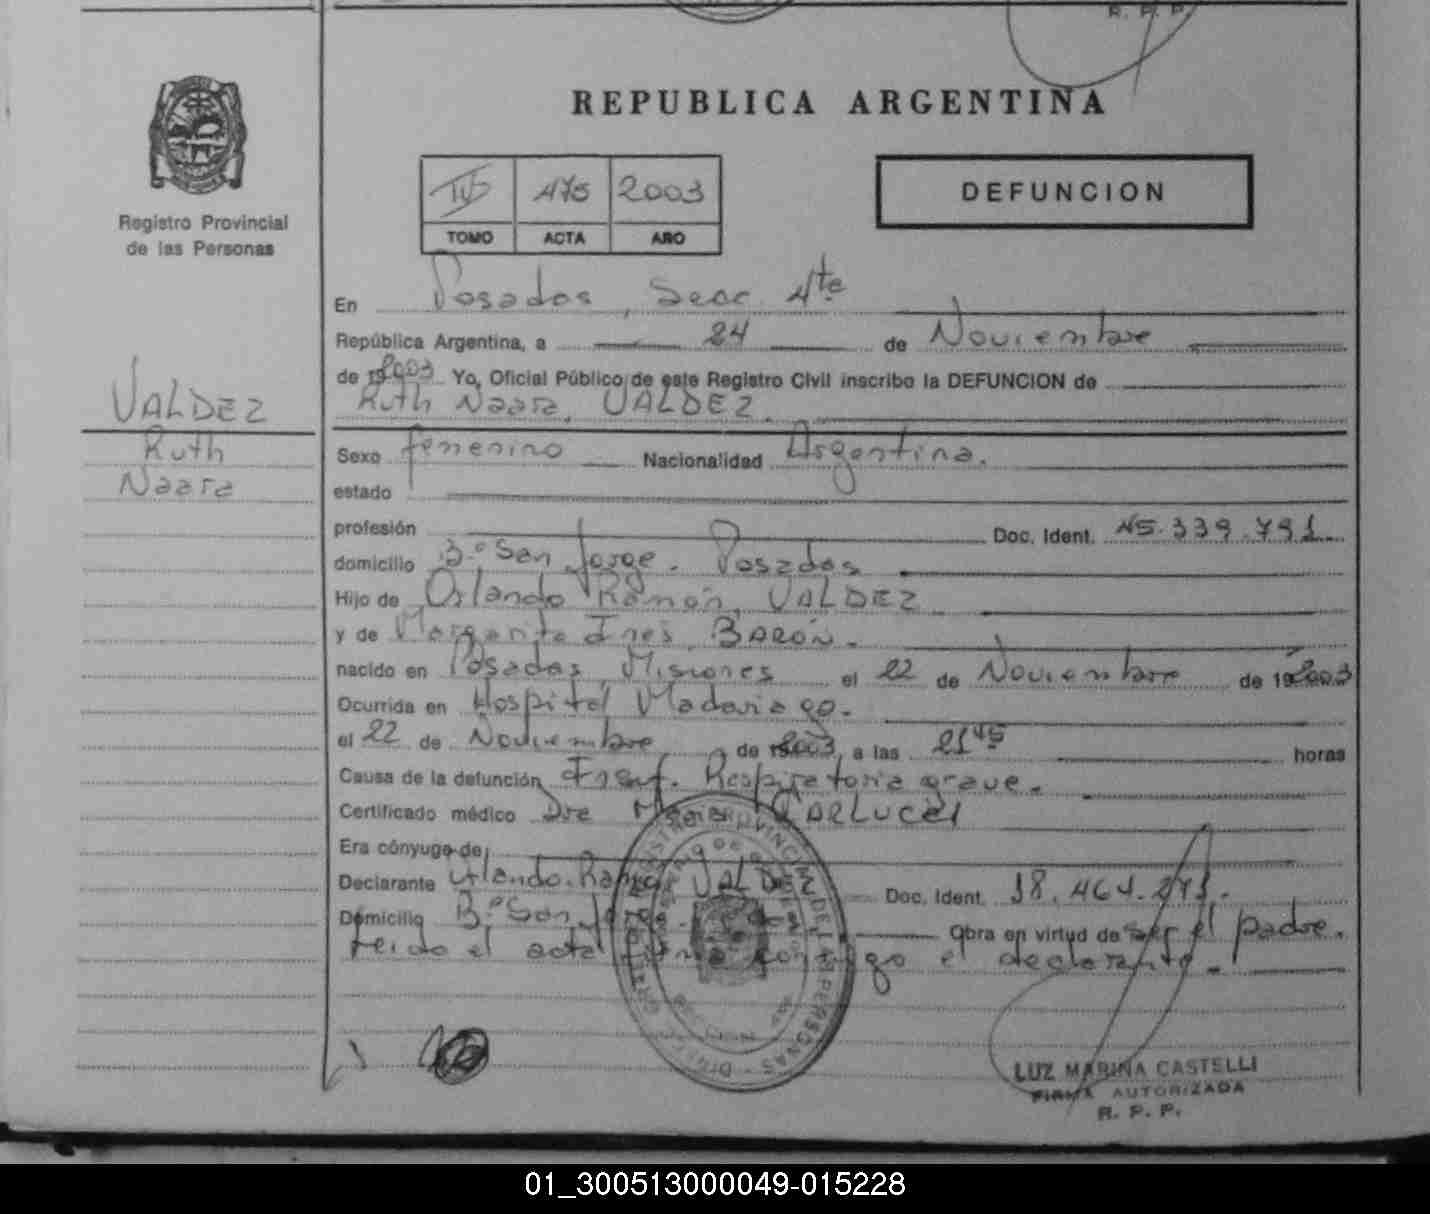 R. P. P.
REPUBLICA ARGENTINA
2003
DEFUNCION
TOMO ACTA AÑO
Registro Provincial
de las Personas
En Posadas, Secc. 4te
República Argentina, a 24 de Noviembre
de 19 2003 Yo, Oficial Público de este Registro Civil inscribo la DEFUNCION de
Ruth Naara, VALDEZ.
VALDEZ
Ruth
Naara
Sexo femenino Nacionalidad Argentina.
estado
profesión Doc. Ident. 45.339.791
domicilio Bº San Jorge. Posadas
Hijo de Orlando Ramón, VALDEZ
y de Margarita Inés BARÓN.
nacido en Posadas, Misiones el 22 de Noviembre de 19 2003
Ocurrida en Hospital Madariaga.
el 22 de Noviembre de 2003, a las 21 45 horas
Causa de la defunción Insuf. Respiratoria grave.
Certificado médico Dra CARLUCCI
Era cónyuge de
Declarante Orlando Ramón VALDEZ Doc. Ident. 18.464.271.
Domicilio Bº San Jorge. Obra en virtud de ser el padre.
Leido el acta firma contigo el declarante.
LUZ MARINA CASTELLI
FIRMA AUTORIZADA
R. P. P.
01_300513000049-015228